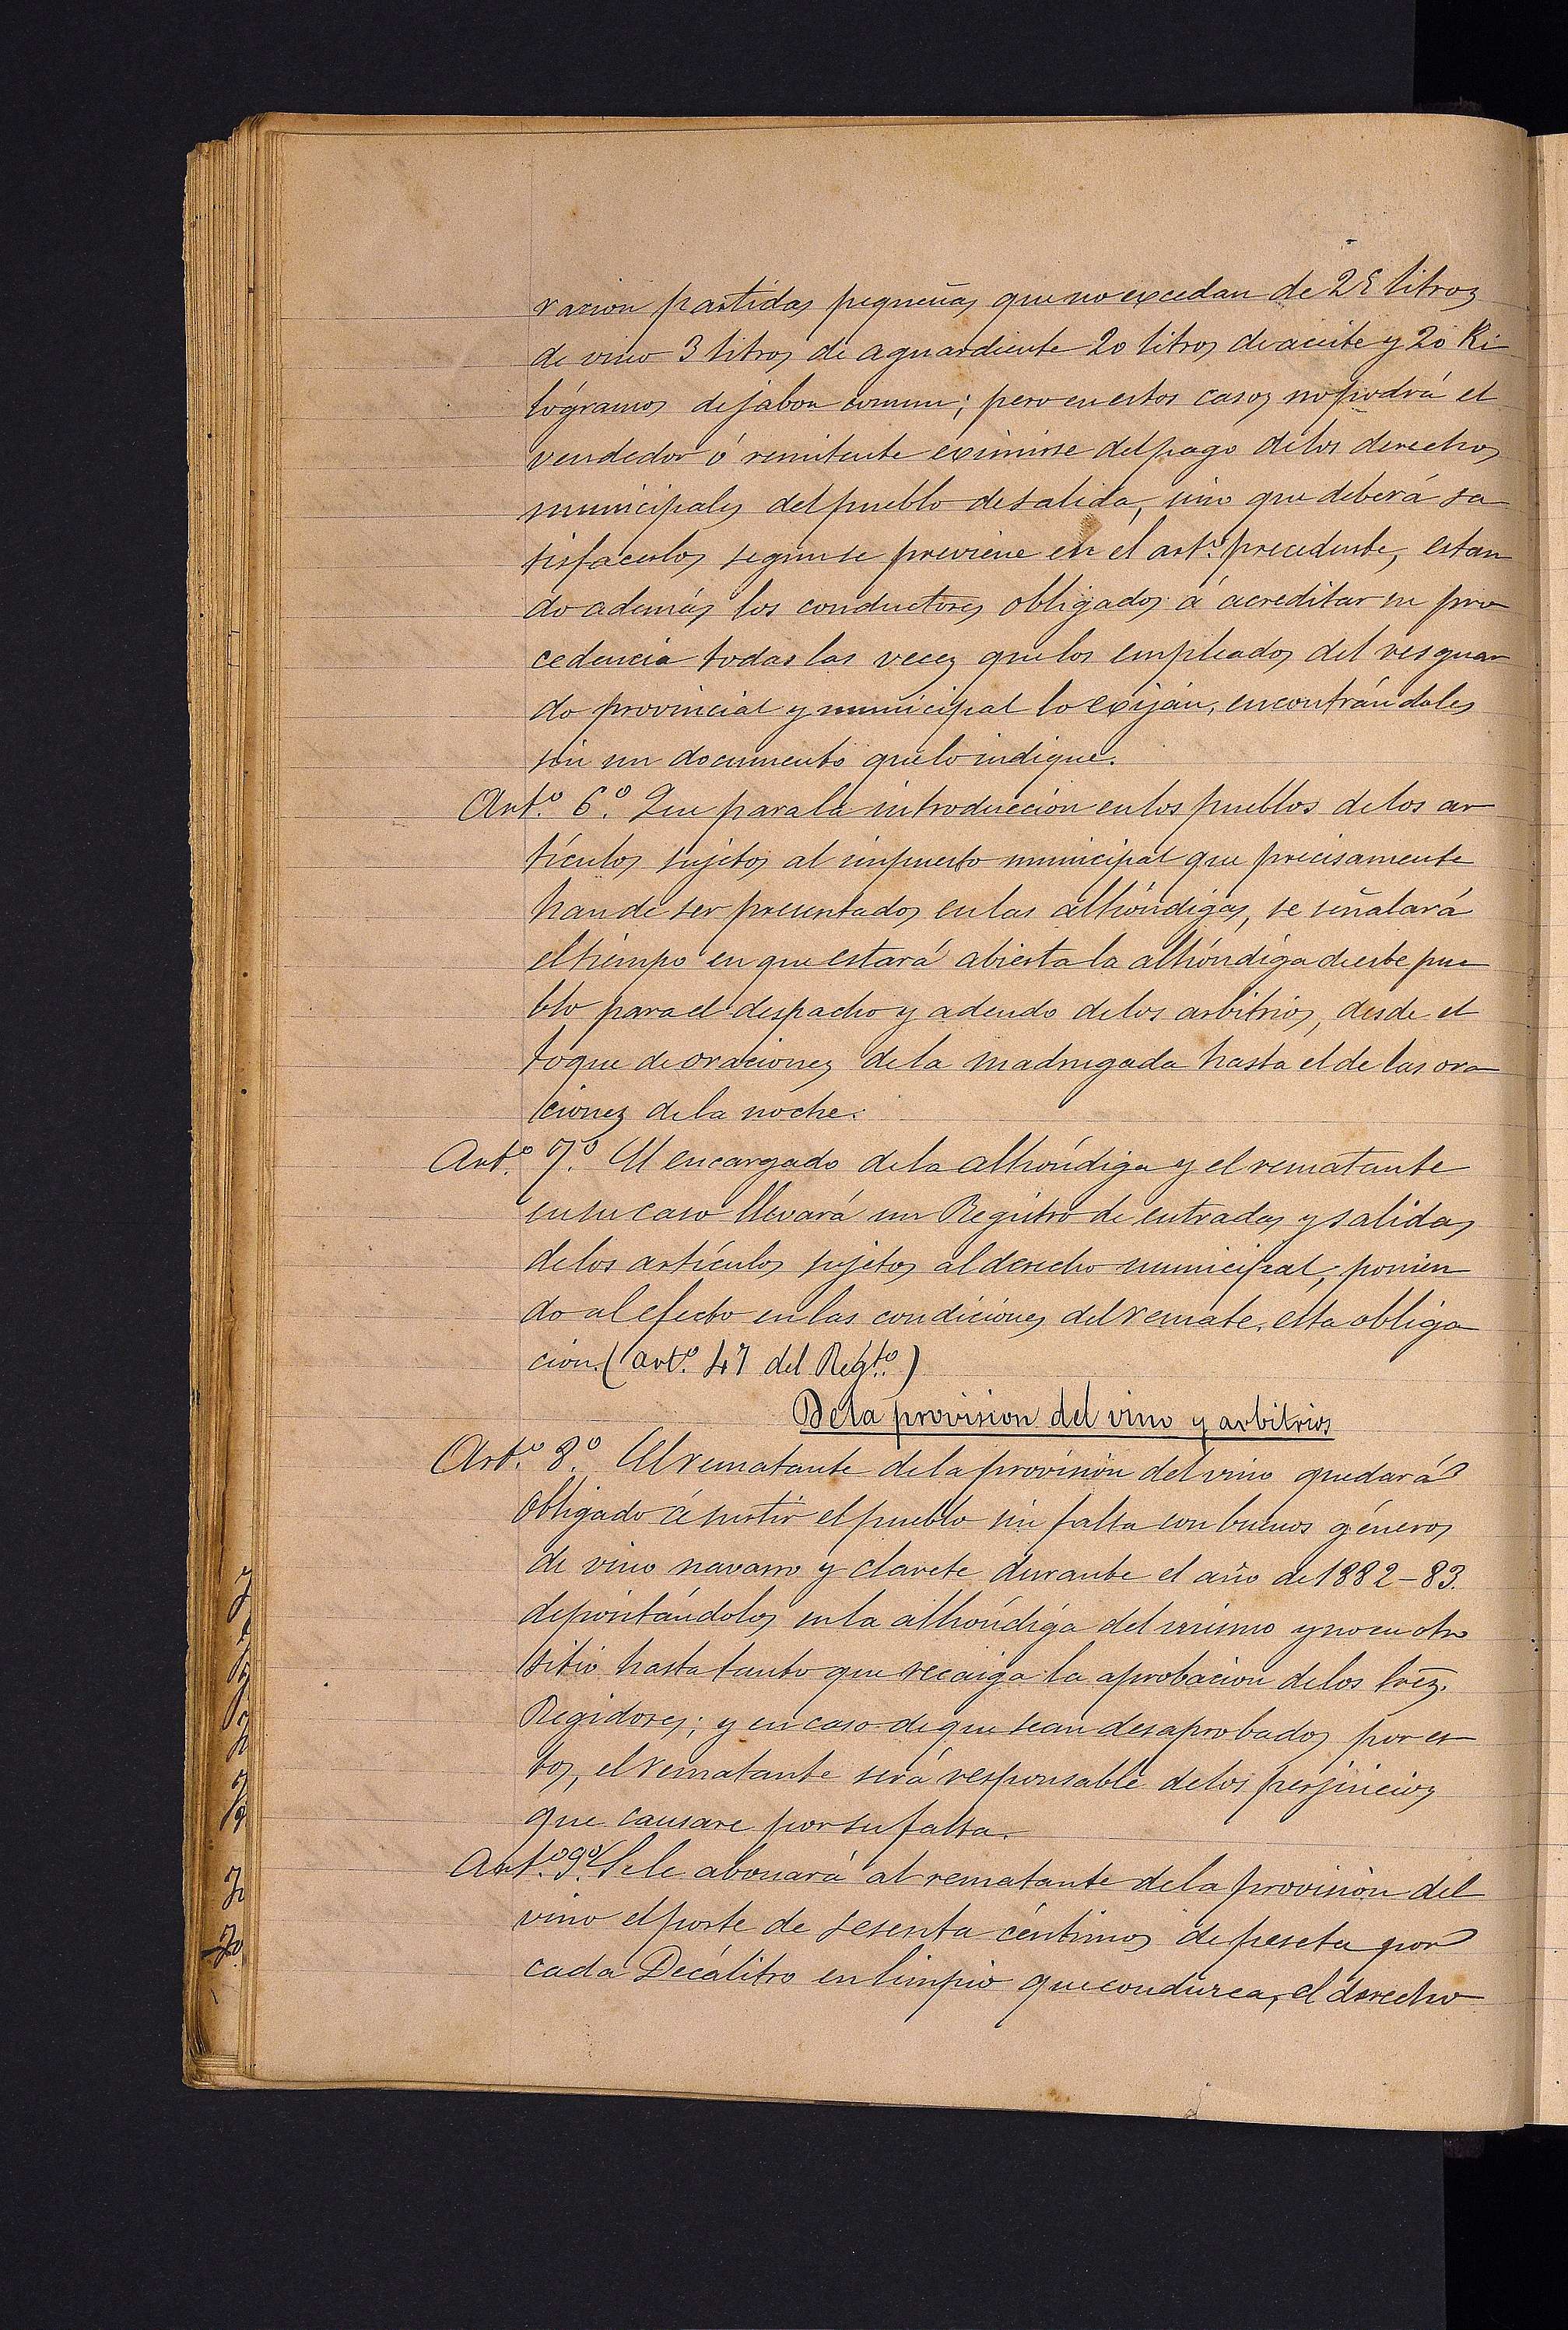 racion partidas pequeñas que no excedan de 25 litros
de vino 3 litros de aguardiente 20 litros de aceite y 20 Ki-
lógramos de jabon comun; pero en estos casos no podrá el
vendedor ó remitente eximirse del pago de los derechos
municipales del pueblo de salida, sino que deberá sa-
tisfacerlos segun se previene en el artº. precedente, estan-
do además los conductores obligados á acreditar su pro-
cedencia todas las veces que los empleados del resguar-
do provincial y municipal lo exijan, encontrándoles
sin un documento que lo indique.
Artº. 6º. Que para la introducción en los pueblos de los ar-
tículos sujetos al impuesto municipal que precisamente
han de ser presentados en las alhóndigas, se señalará
el tiempo en que estará abierta la alhóndiga de este pue-
blo para el despacho y adeudo de los arbitrios, desde el
toque de oraciones de la madrugada hasta el de las ora-
ciones de la noche.
Artº. 7º. El encargado de la alhóndiga y el rematante
en su caso llevará un Registro de entradas y salidas
de los artículos sujetos al derecho municipal, ponien-
do al efecto en las condiciones del remate, esta obliga-
cion. (artº. 47 del Regtº.)
De la provision del vino y arbitrios
Artº. 8º. El rematante de la provisión del vino quedará
obligado á surtir el pueblo sin falta con buenos géneros
de vino navarro y clarete durante el año de 1882-83.
depositándolos en la alhóndiga del mismo y no en otro
sitio hasta tanto que recaiga la aprobacion de los tres
Regidores; y en caso de que sean desaprobados por es-
tos, el rematante será responsable de los perjuicios
que causare por su falta.
Artº. 9º. Se le abonará al rematante de la provisión del
vino el porte de sesenta céntimos de peseta por
cada Decálitro en limpio que conduzca, el derecho